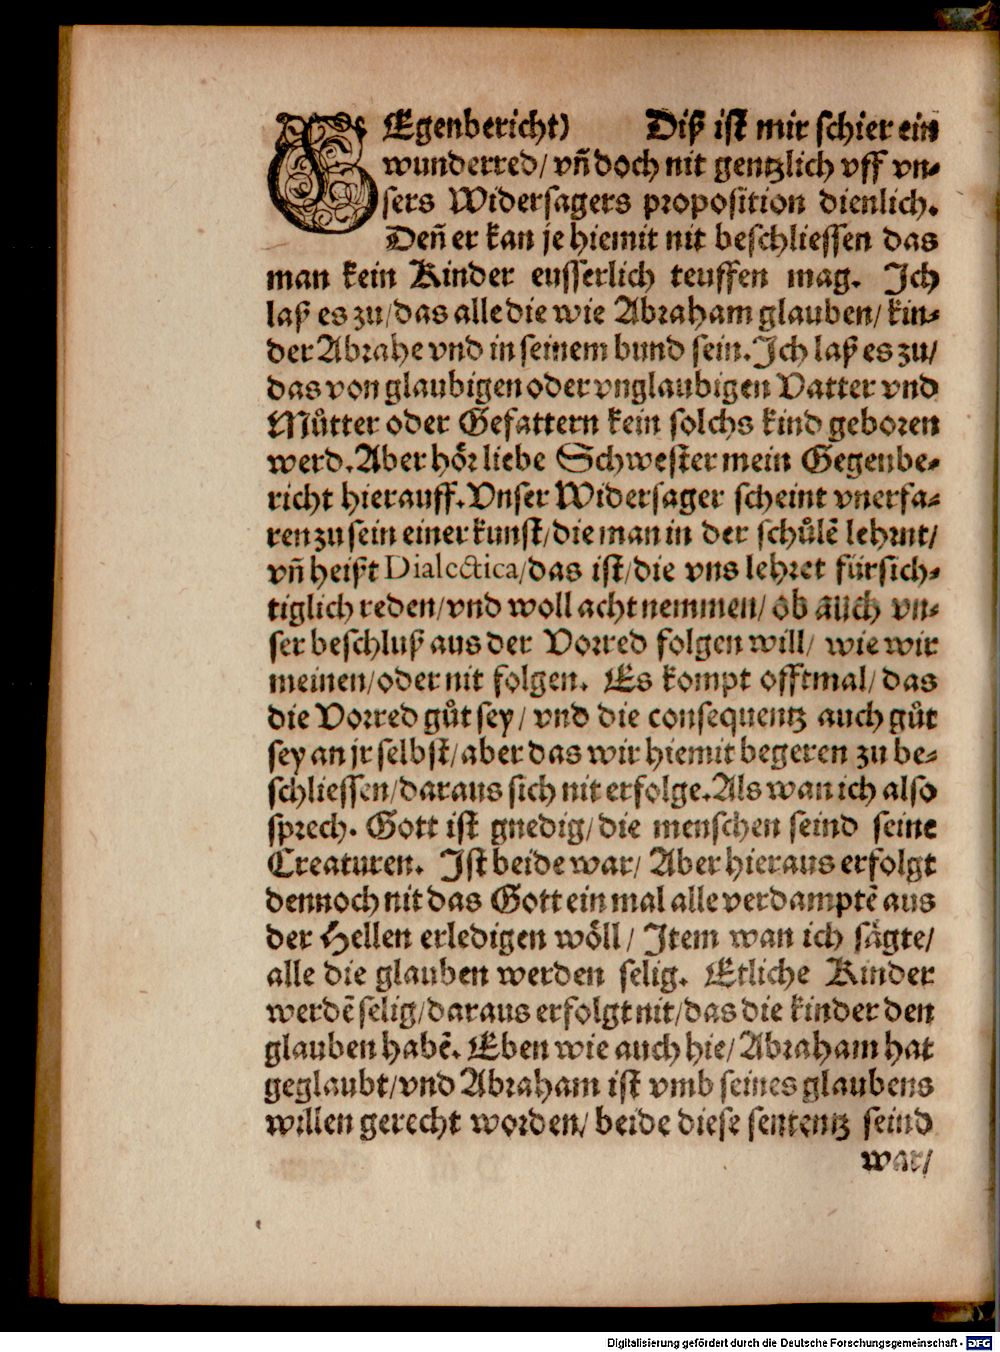 GEgenbericht) Diß ist mir schier ein
wunderred/ vñ doch nit gentzlich vff vn⸗
sers Widersagers proposition dienlich.
Deñ er kan je hiemit nit beschliessen das
man kein Kinder eusserlich teuffen mag. Ich
laß es zu/ das alle die wie Abraham glauben/ kin⸗
der Abrahe vnd in seinem bund sein. Ich laß es zu/
das von glaubigen oder vnglaubigen Vatter vnd
Můtter oder Gefattern kein solchs kind geboren
werd. Aber hoͤr liebe Schwester mein Gegenbe⸗
richt hierauff. Vnser Widersager scheint vnerfa⸗
ren zu sein einer kunst/ die man in der schůlẽ lehrnt/
vñ heißt Dialectica/ das ist/ die vns lehret fürsich⸗
tiglich reden/ vnd woll acht nemmen/ ob auch vn⸗
ser beschluß aus der Vorred folgen will/ wie wir
meinen/ oder nit folgen. Es kompt offtmal/ das
die Vorred gůt sey/ vnd die consequentz auch gůt
sey an jr selbst/ aber das wir hiemit begeren zu be⸗
schliessen/ daraus sich nit erfolge. Als wan ich also
sprech. Gott ist gnedig/ die menschen seind seine
Creaturen. Ist beide war/ Aber hieraus erfolgt
dennoch nit das Gott ein mal alle verdamptẽ aus
der Hellen erledigen woͤll/ Item wan ich saͤgte/
alle die glauben werden selig. Etliche Kinder
werdẽ selig/ daraus erfolgt nit/ das die kinder den
glauben habẽ. Eben wie auch hie/ Abraham hat
geglaubt/ vnd Abraham ist vmb seines glaubens
willen gerecht worden/ beide diese sententz seind
war/
Digitalisierung gefördert durch die Deutsche Forschungsgemeinschaft - DFG